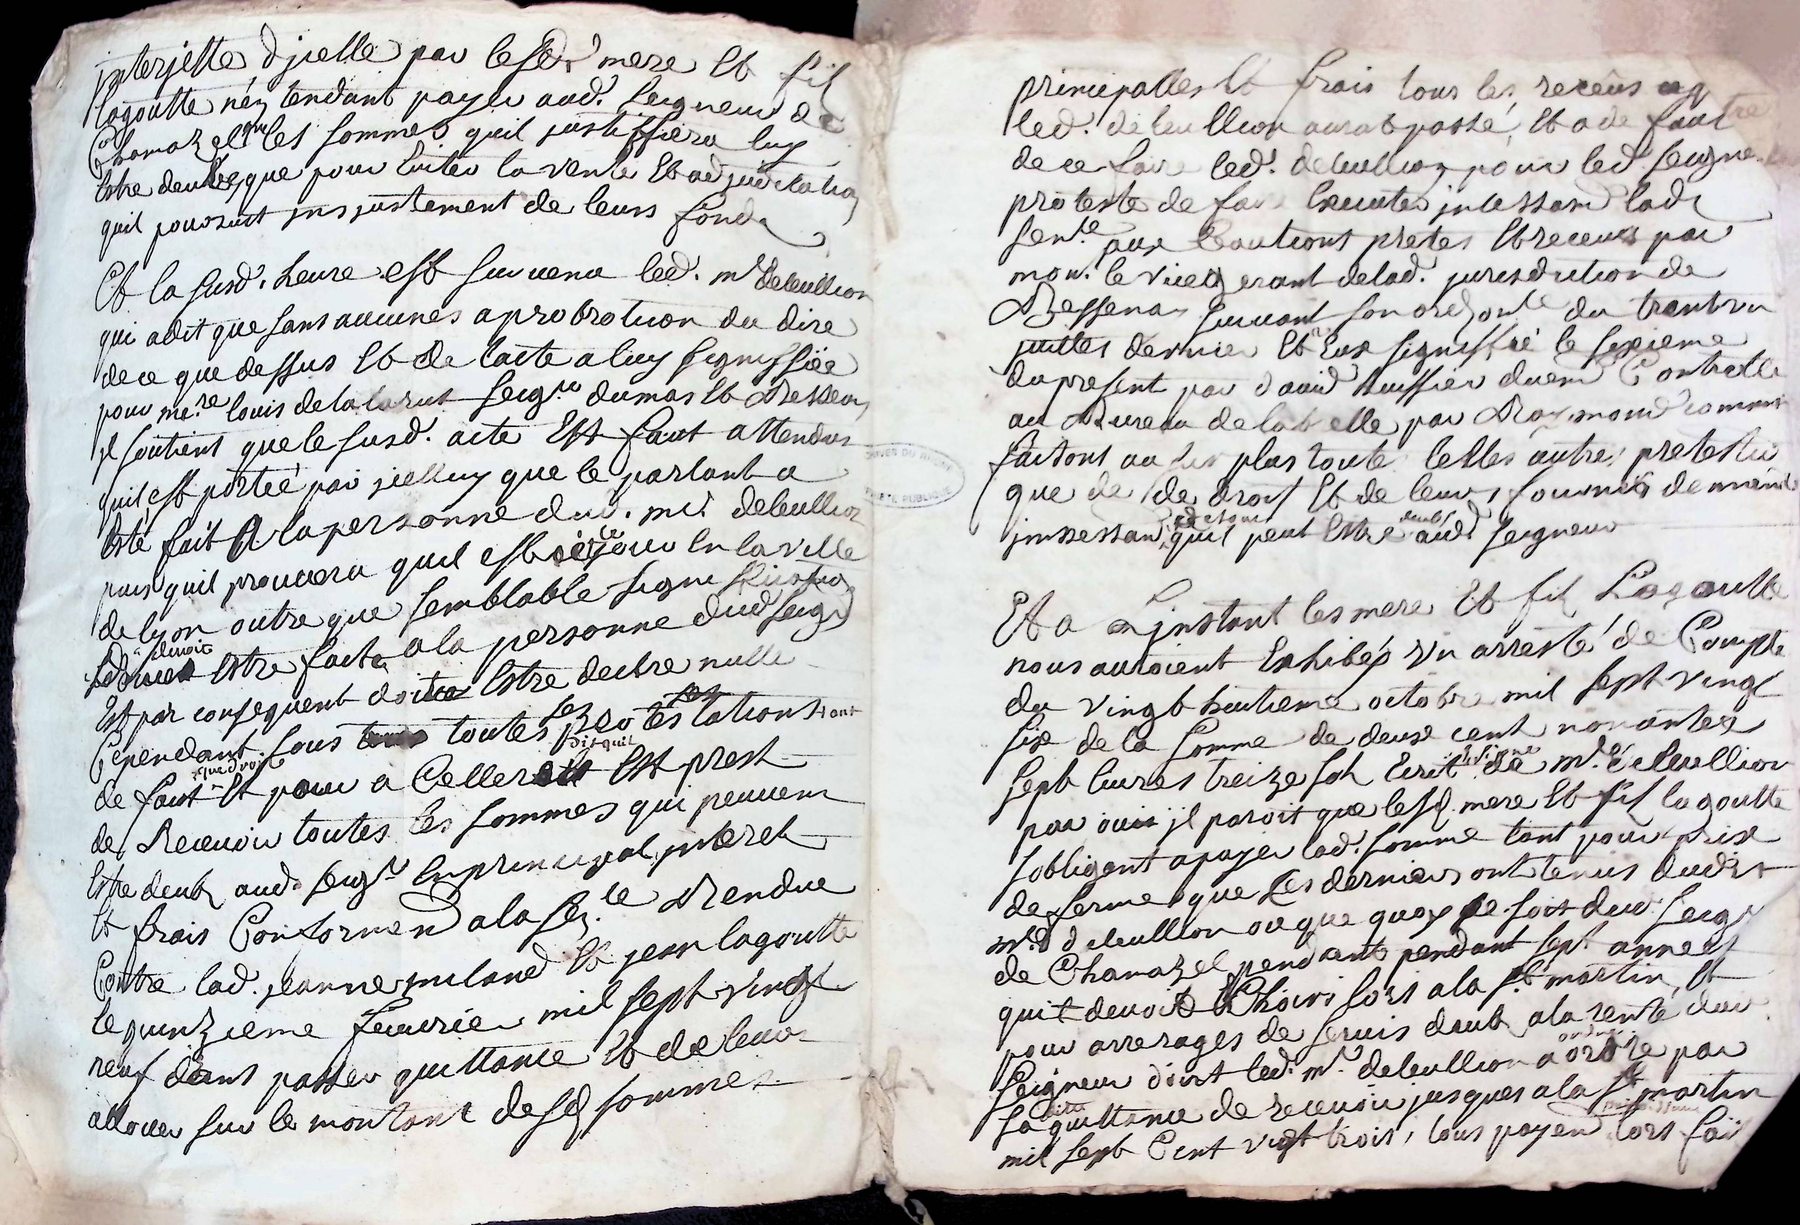 interjette d'icelle par lesd. mere Et fil
lagoutte néz tendant payer aud. Seigneur de
Chamazel que les sommes quil justiffiera luy
Estre deubes que pour Eviter la vente Et adjudication
quil poursuit injustement de leurs fonds
Et la susd. heure est survenu led. mr debeullion
qui a dit que sans aucunes aprobrotion du dire
de ce que dessus Et de lacte a luy signiffiée
pour me.re louis de la Seigr dumas Et
il soutient que le susd. acte Est faut attendus
quil est porteé par icelluy que le parlant a
Esté fait A la personne dud. mr debeullion
puis quil prouvera quil est ce jour En la ville
de lyon outre que semblable signiffication
devoit Estre faite a la personne dud Seigr
Est par consequent doit Estre declre nulle
Cependant sous toutes ses protestations tant
de fait que droit Et pour a Celler dit quil Est prest
de Recevoir toutes les sommes qui peuvent
Estre deub aud. Seigr En principal, interet
Et frais Conformend a la sen.le Rendue
Contre lad. jeanne miland Et jean lagoutte
le quinzieme feuvrier mil sept vingt
neuf dans passer quittance Et de leur
allouer sur le montant desd sommes
principalles Et frais tous les receus
led. debeullion aurat passé, Et a de faute
de ce faire led. debeullion pour led Seigne
proteste de faire Executer incessam lad
sen.ce aux Cautions pretes Et receues par
mon. le vicegerant de lad. jurisdiction de
Bessenay suivant son ordonce du trantun
juillet dernier Et Eux signiffié le sixieme
du present par david huissier duem Controllé
au Bureau de labrelle par Raymond commis
faisons au sur plus toute telles autres
que de de droit Et de leurs fournir
incessam quil peut Estre deub aud Seigneur
Et a Linstant les mere Et fil Lagoutte
nous auroient Exhibéz un arresté de Compte
du vingt huitieme octobre mil sept vingt
six de la somme de deux cent nonantes
sept livres treize sols Ecrit Et signe de mr debeullion
par ouis il paroit que lesd. mere Et fil lagoutte
sobligent a payer lad. somme tant pour prix
de ferme que Les derniers ont tenus dudit
mr. debeullion ou que quoy ce soit dud. Seigr
de Chamazel pendant pendant sept années
quit devoit lors a la st martin, Et
pour arrerages de servis deub a la rente dud.
Seigneur dont led. mr. debeullion a par
sa quittance de recevoir jusques a la st martin
mil sept Cent vingt trois, tous payen lors fait